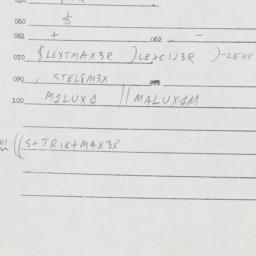 060 $
061 + 062 -
070 $LEXTMAX3R )LEXC1J3R )-LEXC
090 , STEL8M3X
100 M1LUX1 || MALUX1M
((S+TRIK+MAX3R